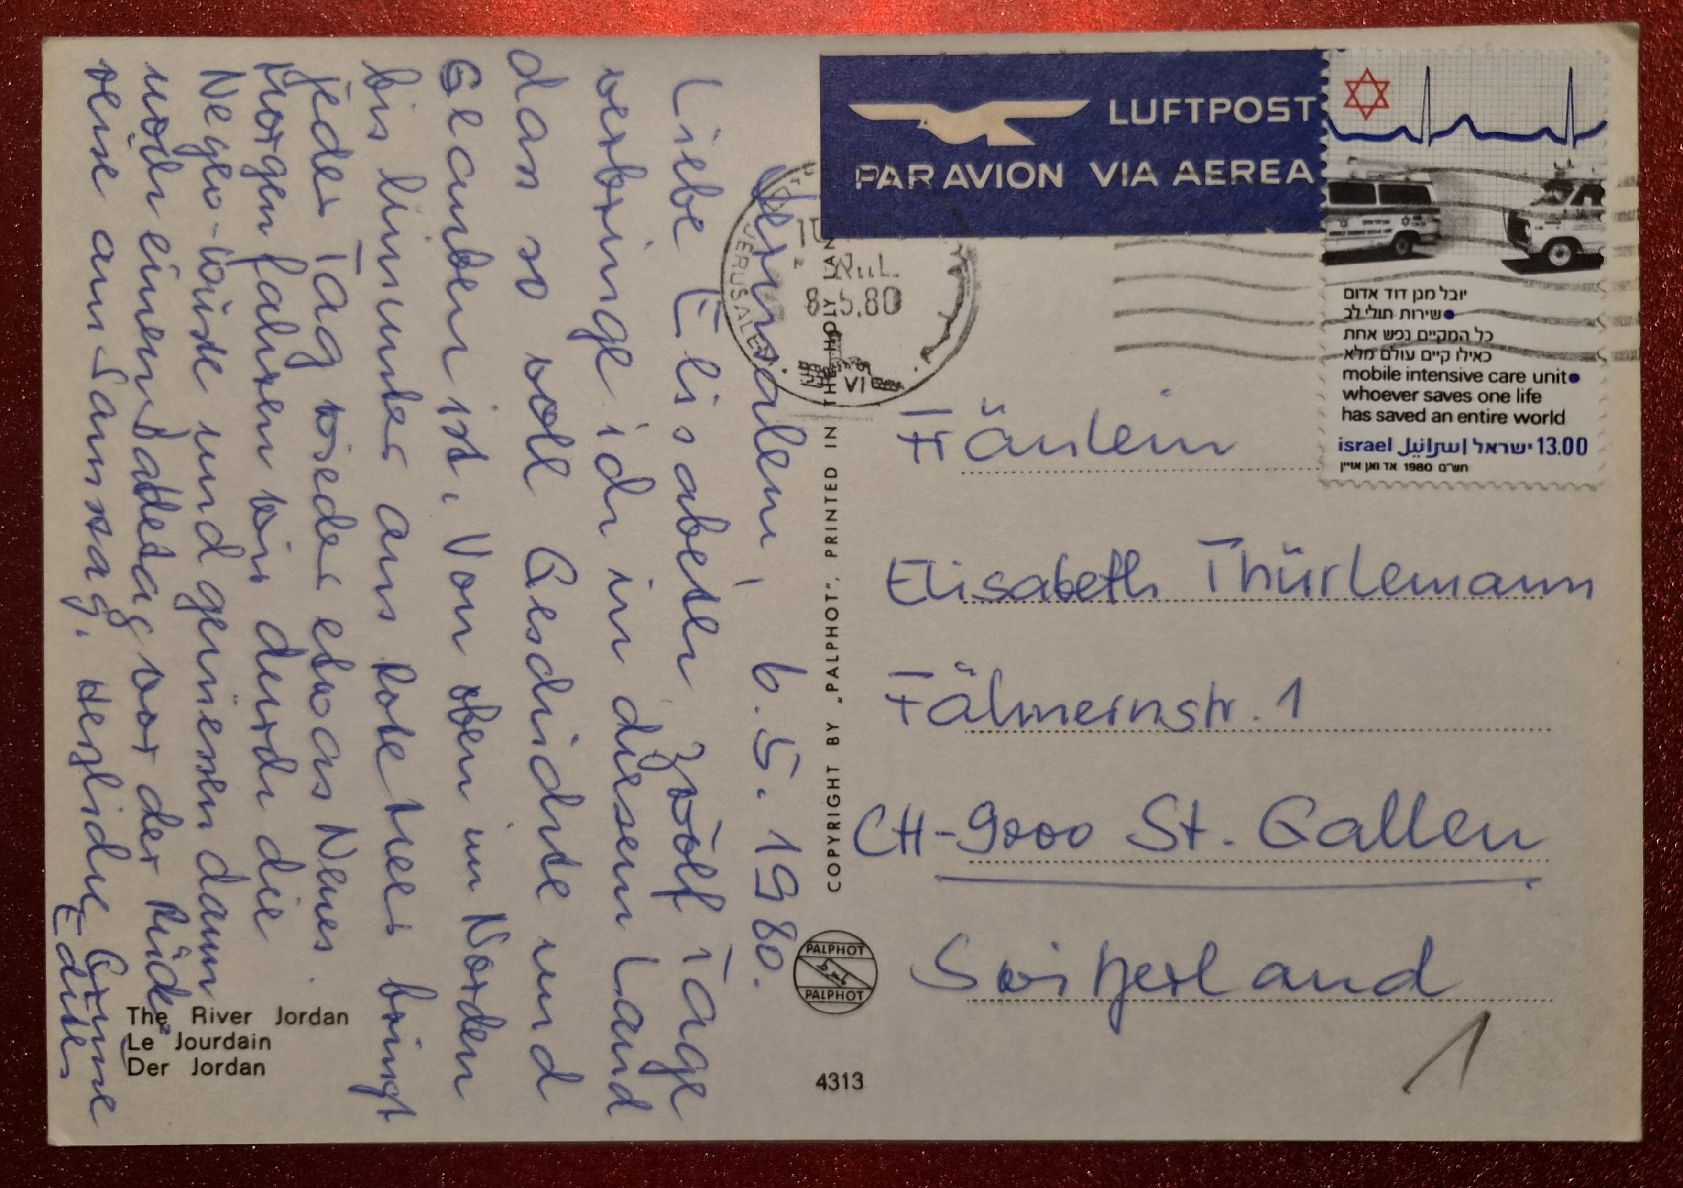 Jerusalem, 6. 5. 1980.
Liebe Elisabeth zwölf Tage
verbringe ich in diesem Land
das so voll Geschichte und
Glauben ist. Von oben im Norden
bis hinunter ans Rote Meer bringt
jeder Tag wieder etwas Neues.
Morgen fahren wir durch die
Negev-Wüste und geniessen dann
noch einen Badetag vor der Rück-
reise am Samstag. Herzliche Grüsse
The River Jordan
Le Jourdain
Der Jordan
COPYRIGHT BY „PALPHOT". PRINTED IN THE HOLY LAND
PALPHOT
PALPHOT
4313
LUFTPOST
PAR AVION VIA AEREA
JERUSALEM
8.5.80
VI
יובל מגן דוד אדום
שירות חולי לב
כל המקיים נפש אחת
כאילו קיים עולם מלא
mobile intensive care unit
whoever saves one life
has saved an entire world
israel اسرائيل ישראל 13.00
Fräulein
Elisabeth Thürlemann
Fälmernstr. 1
CH-9000 St. Gallen
Switzerland
1